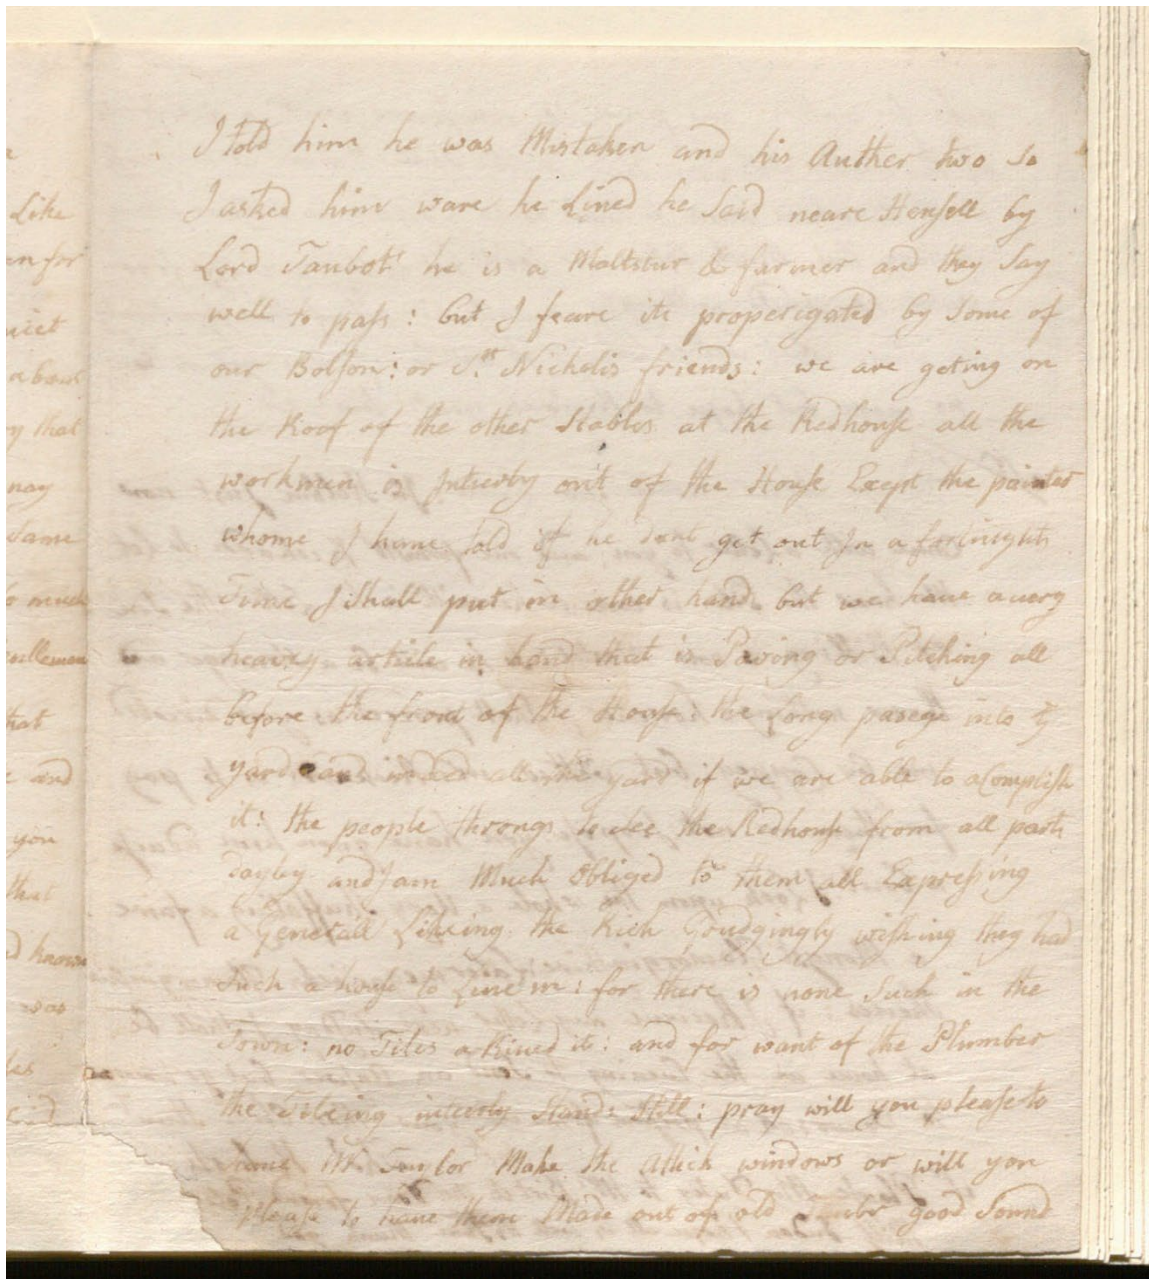 I told him he was Mistaken and his Auther two so
I asked him ware he Lived he Said neare Hensell by
Lord Taubots he is a Maltstur & farmer and they Say
well to pass: but I feare its properigated by Some of
our Bolson: or St. Nicholis friends: we are geting on
the Roof of the other Stables at the Redhouse all the
workmen is Intierly out of the House Except the painter
whome I have told if he dont get out In a fortnights
Time I Shall put in other hand but we have avery
heavey article in hand that is Paving or Pitching all
before the front of the House: the Long pasege into ye
yard and indeed all the yard if we are able to acomplish
it: the people throngs to See the Redhouse from all parts
dayley and I am Much Obliged to them all Expressing
a Generall Likeing the Rich Goudgingly wishing they had
Such a house to Live in: for there is none Such in the
Town: no Tiles a Rived it: and for want of the Plumber
the Tileing intierly Stands Still: pray will you please to
have Mr. Taylor Make the Attick windows or will you
Please to have them Made out of old good Sound
Like
that
Same
much
that
and
you
that
was